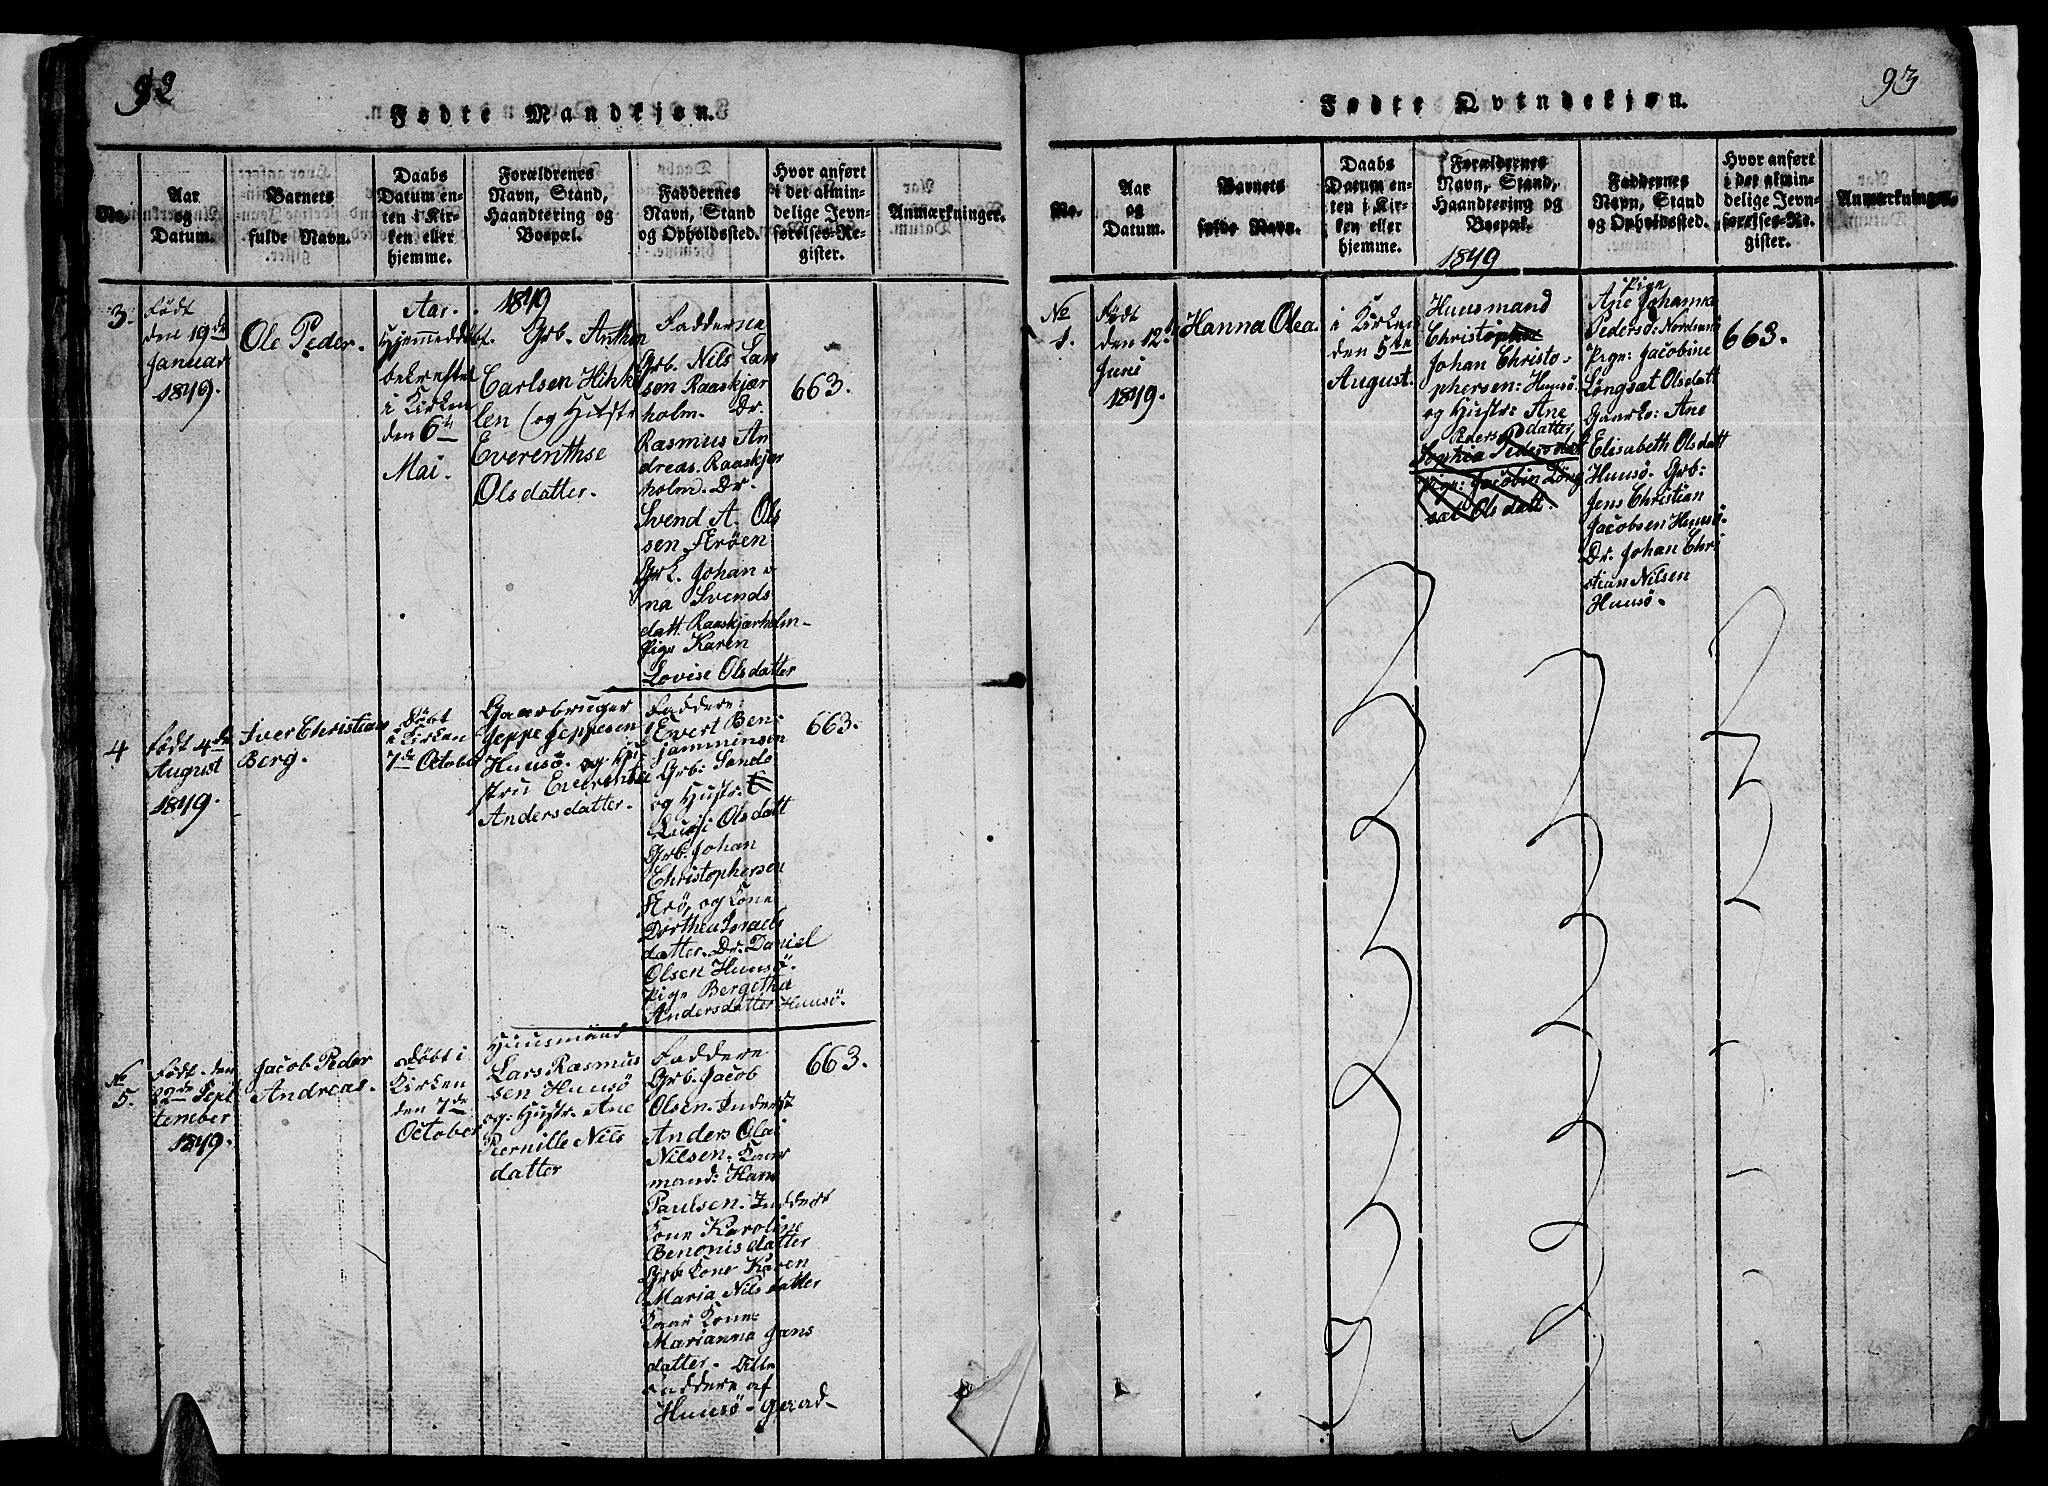 92
Fødte Mandkjøn.
No.
Aar
og
Datum.
Barnets
fulde Navn.
Daabs
Datum en-
ten i Kir-
ken eller
hjemme.
Forældrenes
Navn, Stand,
Haandtering og
Bopæl.
Faddernes
Navn, Stand
og Opholdssted.
Hvor anført
i det almin-
delige Jevn-
førelses-Re-
gister.
Anmærkninger.
3.
Født
den 19de
Januar
1849.
Ole Peder.
Aar.
Hjemmedøbt.
bekreftet
i Kirken
den 6te
Mai.
1849
Grb. Anthon
Carlsen
og Hustr
Everenthse
Olsdatter.
Faddere
Grb. Nils Lar
sen Raaskjær
holm. Dr.
Rasmus An
dreas. Raaskjær
holm. Dr.
Svend A. Ols
sen Ærøen
Grk. Johan
na Svends
datt. Raaskjærholm
Pige Karen
Lovise Olsdatter
663.
4
Født 4de
August
1849.
Iver Christian
Berg.
Døbt
i Kirken
7de October
Gaarbruger
Jeppe Jeppesen
Huusö. og Hu
stru Everentha
Andersdatter.
Faddere:
Evert Ben-
jamminsen
Grb: Sandö
og Hustr.
Olsdatt
Grb. Johan
Christophersen
Ærö, og Kone
Dorthea Israels
datter. Dr. Daniel
Olsen Huusö.
Pige Bergetha
Andersdatter Huusö.
663.
No
5.
Født den
22de Sept
tember
1849.
Jacob Peder
Andreas.
Døbt i
Kirken
den 7de
October
Huusmand
Lars Rasmus
sen Huusö
og Hustr. Ane
Pernille Nils
datter
Faddere
Grb. Jacob
Olsen. Inderst
Anders Olai
Nilsen. Kaar
mand: Hans
Paulsen. Inderst
Kone Karoline
Benonisdatter
Grb. Kone Karen
Maria Nilsdatter
Kaar Kone
Marianna Jans
datter. Alle
Faddere af
Huusö
663.
93
Fødte Qvindekjøn.
No.
Aar
og
Datum.
Barnets
fulde Navn.
Daabs
Datum en-
ten i Kir-
ken eller
hjemme.
Forældrenes
Navn, Stand,
Haandtering og
Bopæl.
Faddernes
Navn, Stand
og Opholdssted.
Hvor anført
i det almin-
delige Jevn-
førelses-Re-
gister.
Anmærkninger.
No
1.
Født
den 12te
Juni
1849.
Hanna Olea.
i Kirken
den 5te
August.
1849
Huusmand
Christopher
Johan Christo-
phersen: Huusö.
og Hustr: Ane
Pedersdatter,
Sophia Pedersdatt
Pige: Jacobin Löng
sæt Olsdatt.
Pige
Ane Johanna
Pedersd: Nordsund
Pige: Jacobine
Løngsæt Olsdatt
Gaarko: Ane
Elisabeth Olsdatt
Huusö. Grb:
Jens Christian
Jacobsen Huusö
Dr. Johan Chri
stian Nilsen
Huusö.
663.